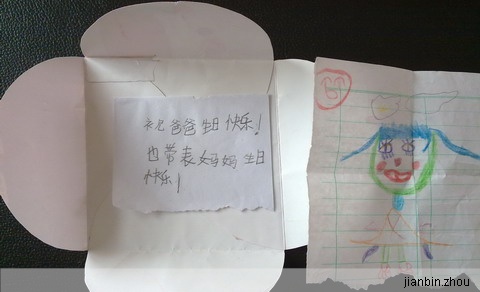 祝爸爸生日快乐!
也带表妈妈生日
快乐!
jianbin.zhou